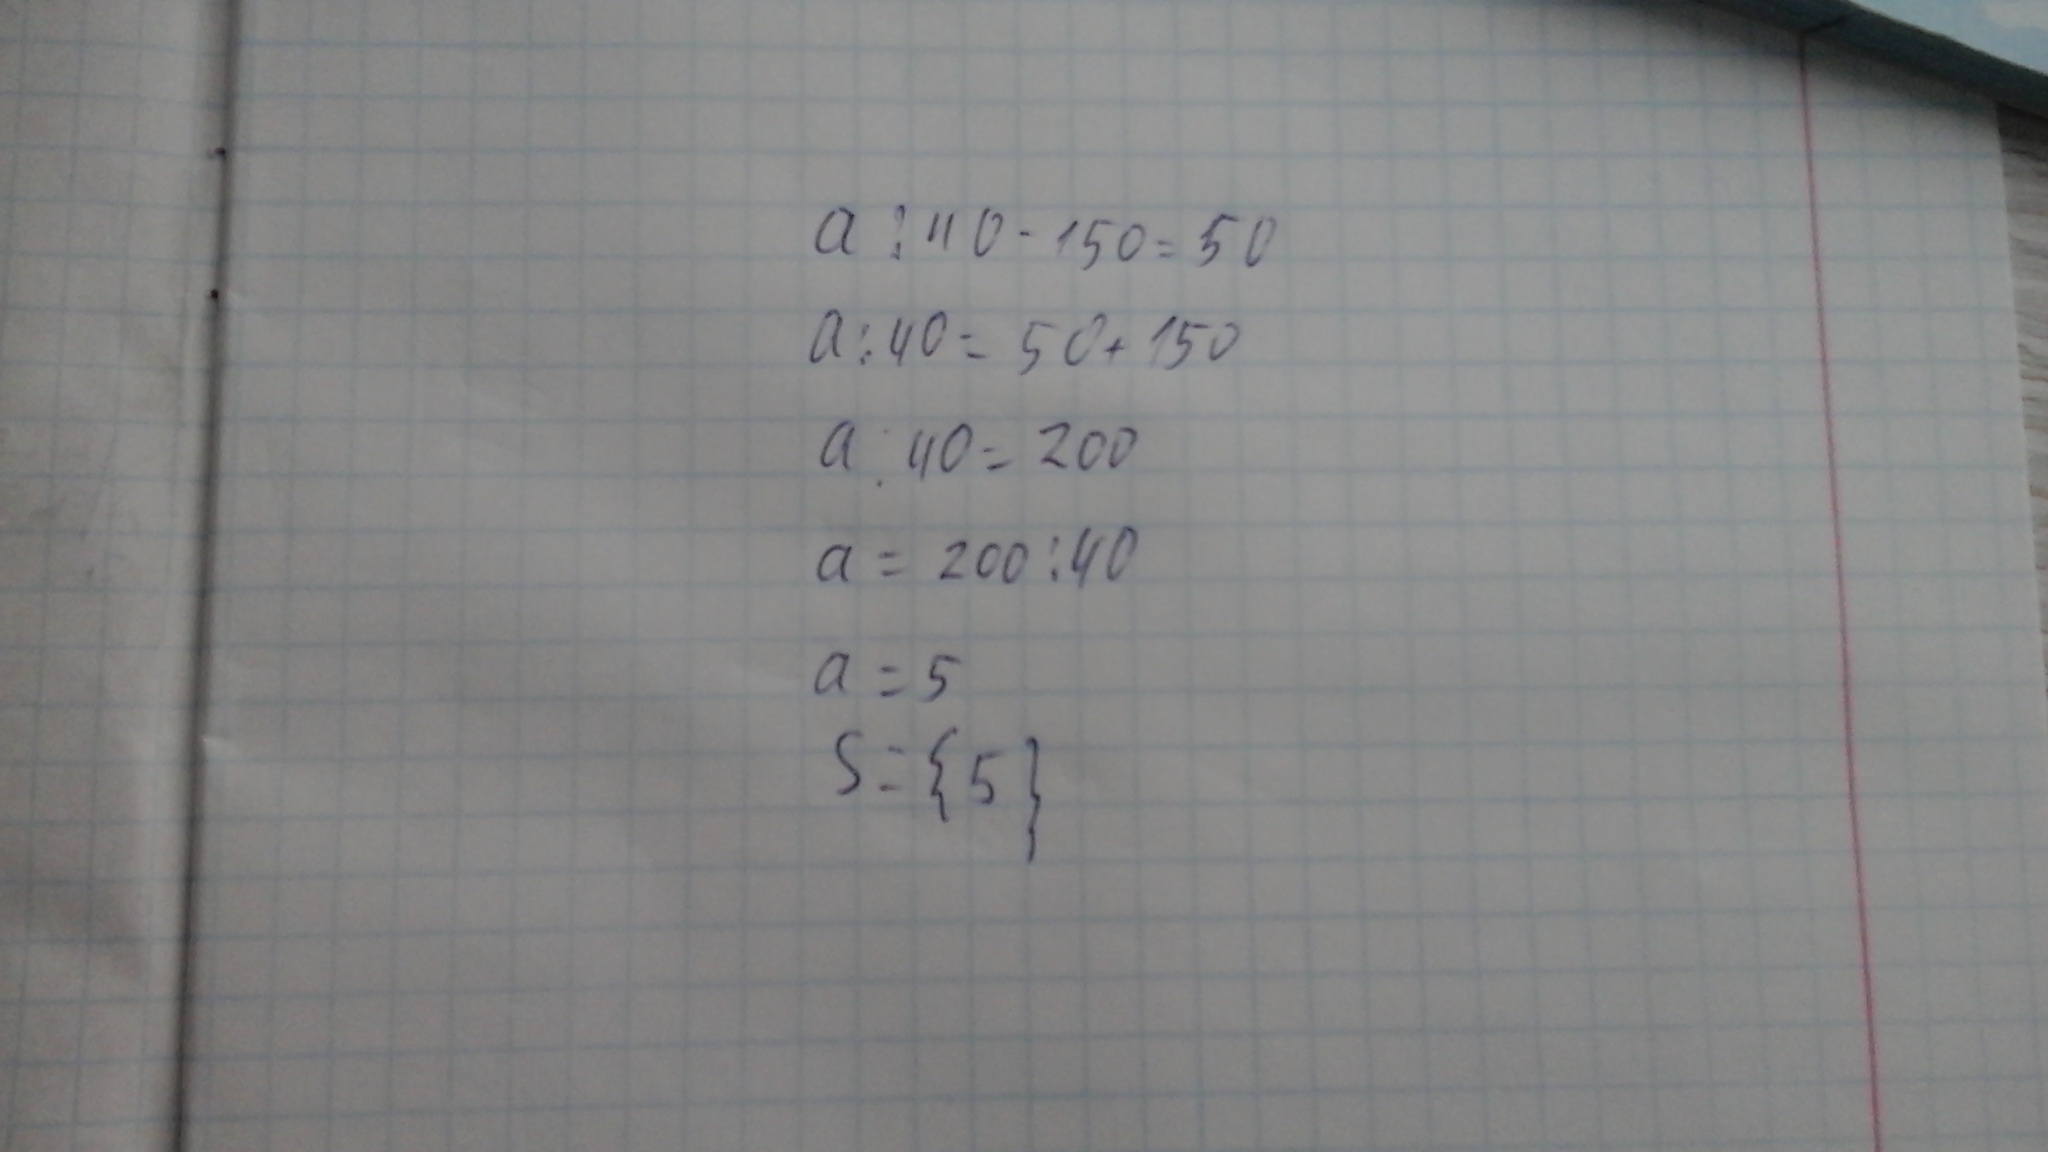 a : 40 - 150 = 50
a : 40 = 50 + 150
a : 40 = 200
a = 200 : 40
a = 5
S = {5}